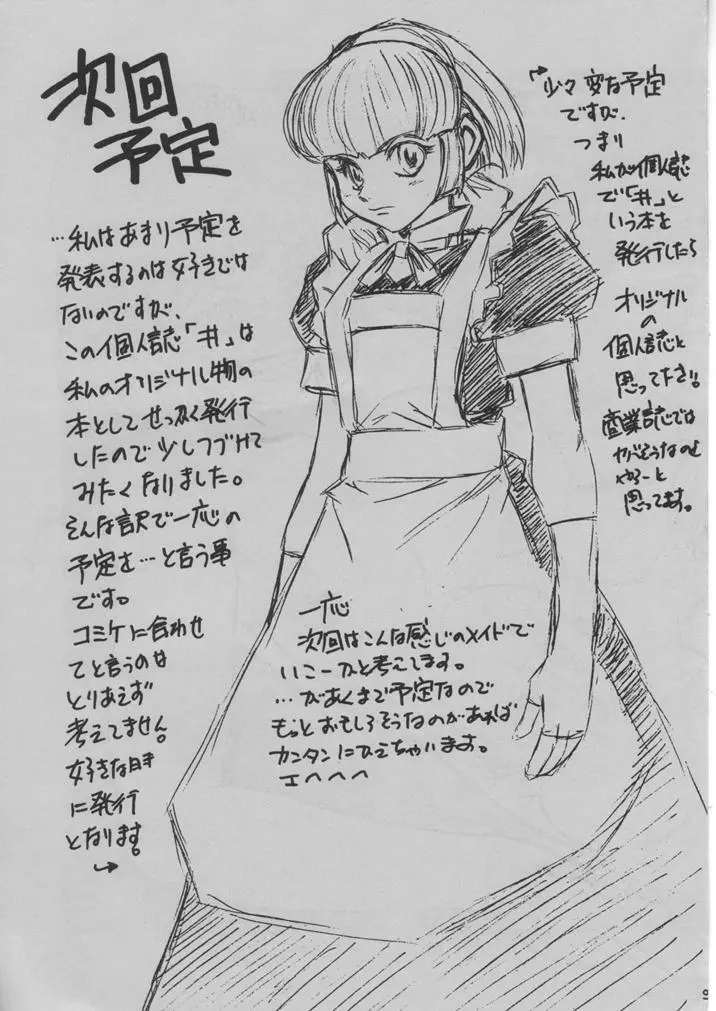 次回
予定
…私はあまり予定を
発表するのは好きでは
ないのですが、
この個人誌「井」は
私のオリジナル物の
本としてせっかく発行
したので少しつづけて
みたくなりました。
そんな訳で一応の
予定を…と言う事
です。
コミケに合わせ
てと言うのは
とりあえず
考えてません。
好きな時
に発行
となります。
→
少々変な予定
ですが、
つまり
私が個人誌
で「井」と
いう本を
発行したら
オリジナル
の
個人誌と
思って下さい。
商業誌では
ヤバそうなのを
やろーと
思ってます。
一応
次回はこんな感じのメイドで
いこーかと考えてます。
…があくまで予定なので
もっとおもしろそうなのがあれば
カンタンにかえちゃいます。
エヘヘヘ